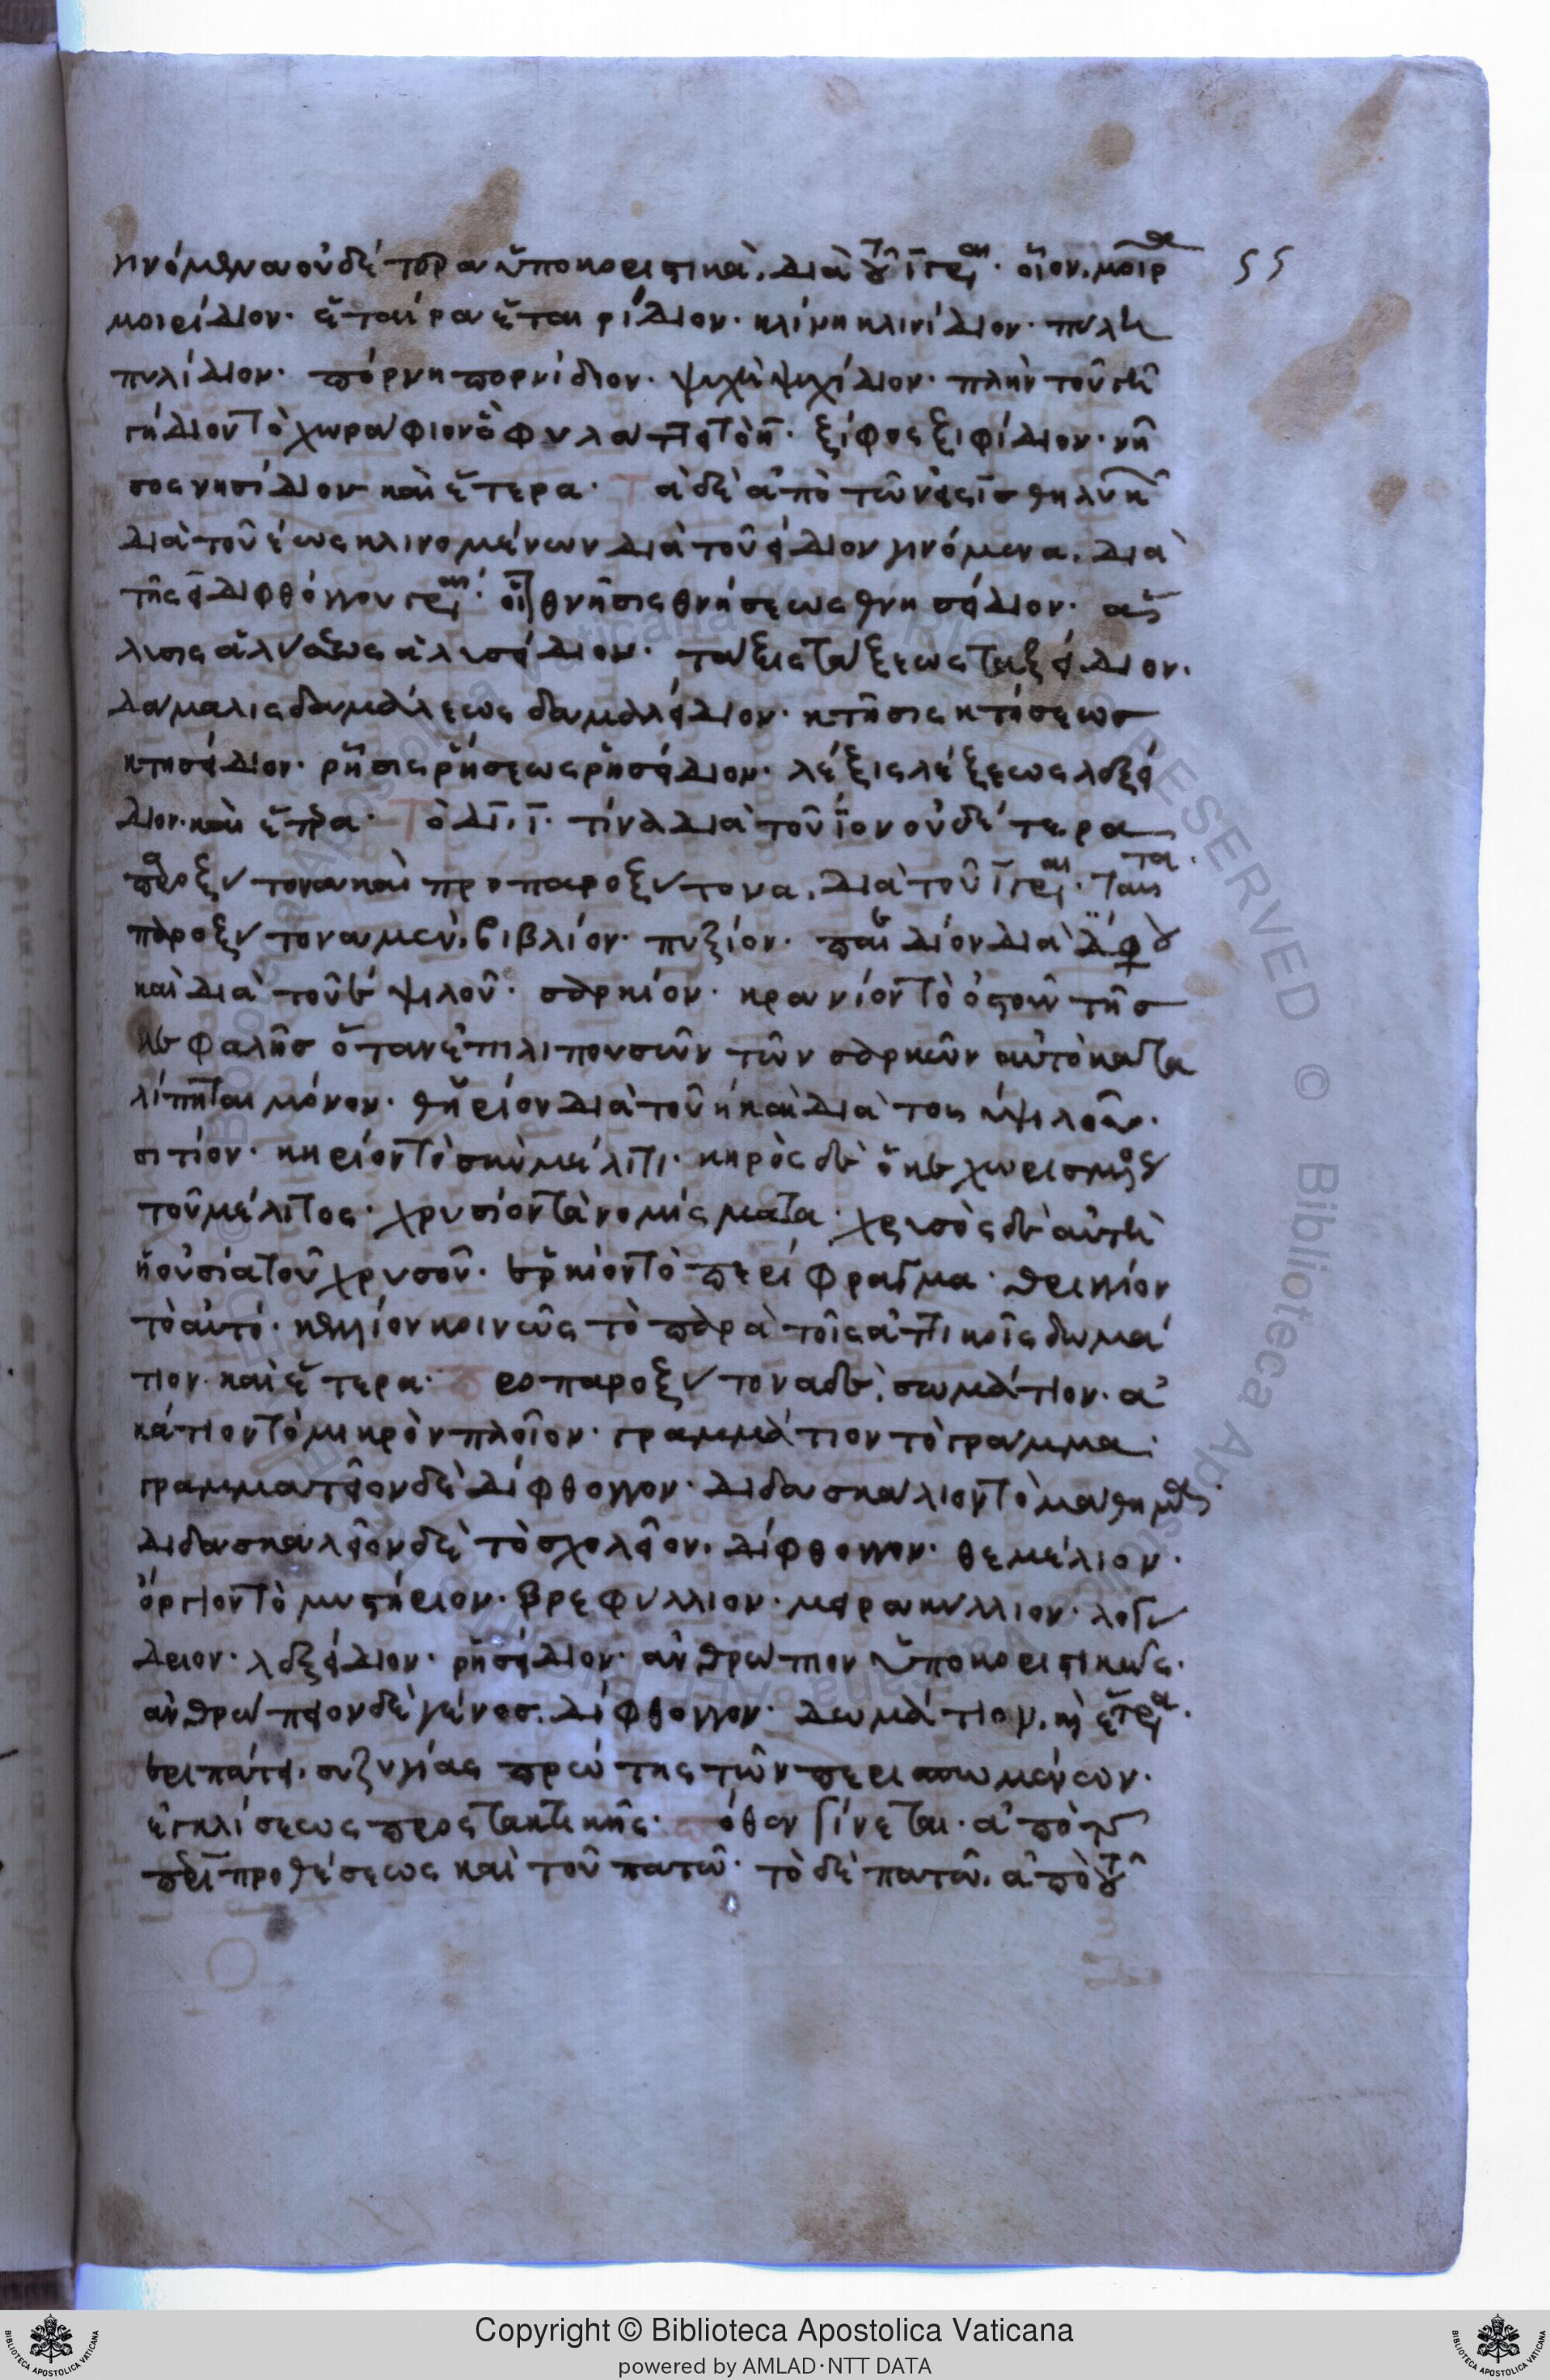 γινόμενα οὐδέτερα ὑποκοριστικὰ, διὰ τοῦ ῑ γράφεται· οἷον, μοῖρα
55
μοιρίδιον· ἑταίρα ἑταιρίδιον· κλίνη κλινίδιον· πύλη
πυλίδιον· πόρνη πορνίδιον· ψυχὴ ψυχίδιον· πλὴν τοῦ γῆ
γήδιον τὸ χωράφιον ὃ φυλάττει τὸ η· ξίφος ξιφίδιον· νῆ
σος νησίδιον καὶ ἕτερα· Τὰ δὲ ἀπὸ τῶν εἰς ῑς θηλυκῶν
διὰ τοῦ έως κλινομένων διὰ τοῦ είδιον γινόμενα, διὰ
τῆς ει διφθόγγου γράφεται· οἷον θνῆσις θνήσεως θνησείδιον·
ταξις ταξεως ταξείδιον·
δαμαλις δαμάλεως δαμαλείδιον· κτῆσις κτήσεως
κτησείδιον· ῥῆσις ῥήσεως ῥησείδιον· λέξις λέξεως λεξεί
διον· καὶ ἕτερα· Τὸ
διὰ τοῦ ϊον οὐδέτερα
παροξύτονα καὶ προπαροξύτονα, διὰ τοῦ ῑ γράφεται·
παροξύτονα μὲν, βιβλίον· πυξίον· παιδίον διὰ διφθόγγου
καὶ διὰ τοῦ ε ψιλοῦ· σαρκίον· κρανίον τὸ ὀστοῦν τῆς
κεφαλῆς ὅταν ἐπιλιπουσῶν τῶν σαρκῶν αὐτὸ κατα
λίπηται μόνον· θηρίον διὰ τοῦ η καὶ διὰ του ι ψιλοῦ·
σιτίον· κηρίον τὸ σὺν μέλιτι· κηρὸς δὲ ὁ κεχωρισμένος
τοῦ μέλιτος· χρυσίον τὰ νομίσματα· χρυσὸς δὲ αὐτὴ
ἡ οὐσία τοῦ χρυσοῦ· ἑρκίον τὸ περίφραγμα· θριγκίον
τὸ αὐτό· κελλίον κοινῶς τὸ παρὰ τοῖς ἀττικοῖς δωμά
τιον καὶ ἕτερα· Προπαροξύτονα δὲ, σωμάτιον· ἀ
κάτιον τὸ μικρὸν πλοῖον· γραμμάτιον τὸ γράμμα·
γραμματεῖον δὲ δίφθογγον· διδασκάλιον τὸ μάθημα
διδασκαλεῖον δὲ τὸ σχολεῖον, δίφθογγον· θεμέλιον·
ὄργιον τὸ μυστήριον· βρεφύλλιον· μειρακύλλιον· λογύ
δριον· λεξείδιον· ῥησείδιον· ἀνθρώπιον ὑποκοριστικῶς·
ἀνθρώπειον δὲ γένος, δίφθογγον· δωμάτιον, καὶ ἕτερα·
περιπάτει, συζυγίας πρώτης τῶν περισπωμένων·
ἐγκλίσεως προστακτικῆς· πόθεν γίνεται· ἀπὸ τῆς
περὶ προθέσεως καὶ τοῦ πατῶ· τὸ δὲ πατῶ, ἀπὸ τοῦ
Copyright © Biblioteca Apostolica Vaticana
powered by AMLAD·NTT DATA